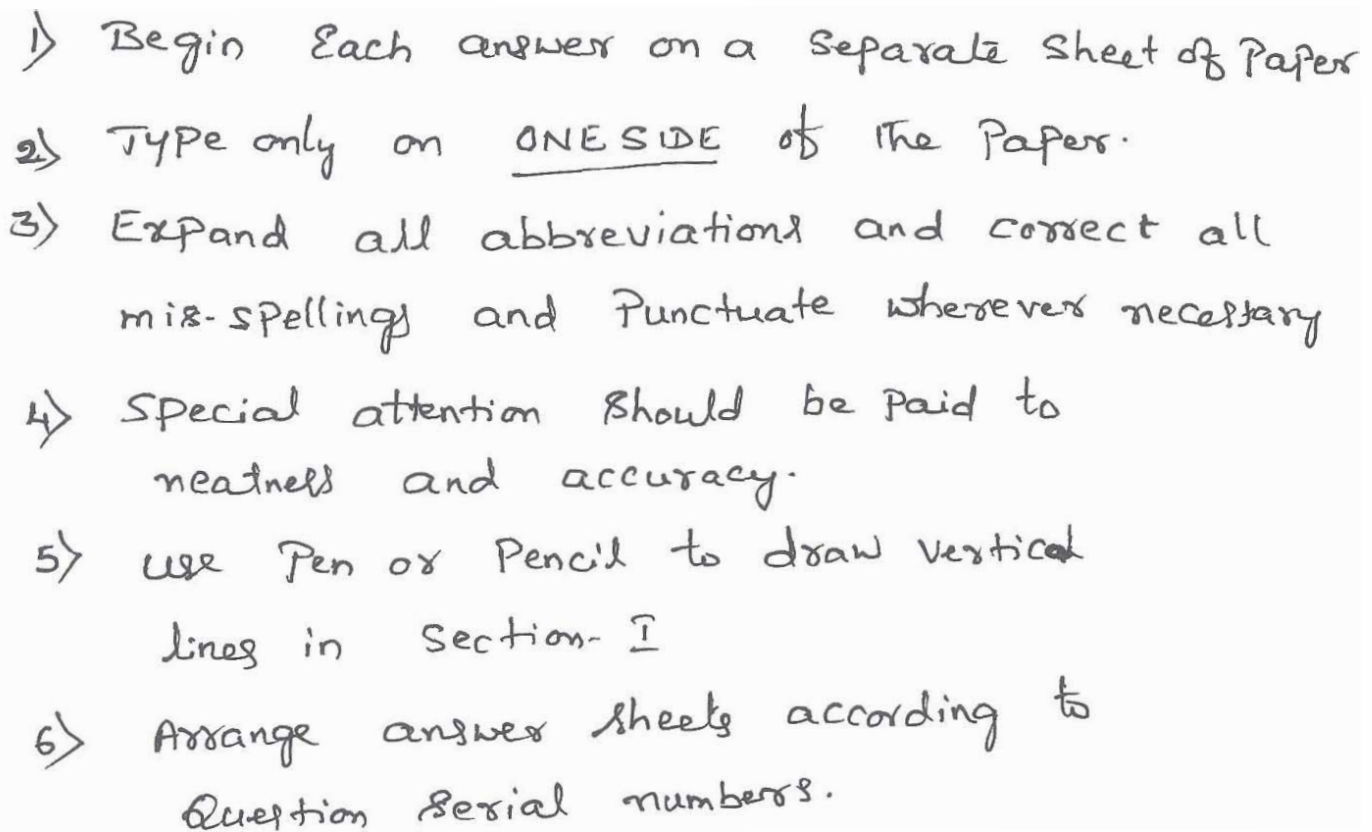 1) Begin Each answer on a Separate Sheet of Paper
2) Type only on ONE SIDE of The Paper.
3) Expand all abbreviations and correct all
mis-spellings and Punctuate wherever necessary
4) Special attention Should be paid to
neatness and accuracy.
5) use Pen or Pencil to draw vertical
lines in Section-I
6) Arrange answer sheets according to
Question Serial numbers.